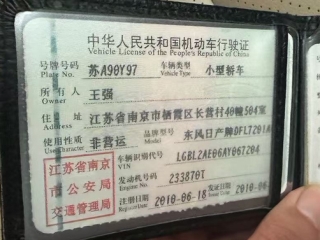 中华人民共和国机动车行驶证
Vehicle License of the People's Republic of China
号牌号码 苏A90Y97 车辆类型 小型轿车
Plate No. Vehicle Type
所有人 王强
Owner
住址 江苏省南京市栖霞区长营村40幢504室
Address
使用性质 非营运 品牌型号 东风日产牌DFL7201A
Use Character Model
江苏省南京市公安局交通管理局
车辆识别代号 LGBL2AE06AY067204
VIN
发动机号码 233870T
Engine No.
注册日期 2010-06-18 发证日期 2010-06-
Register Date Issue Date